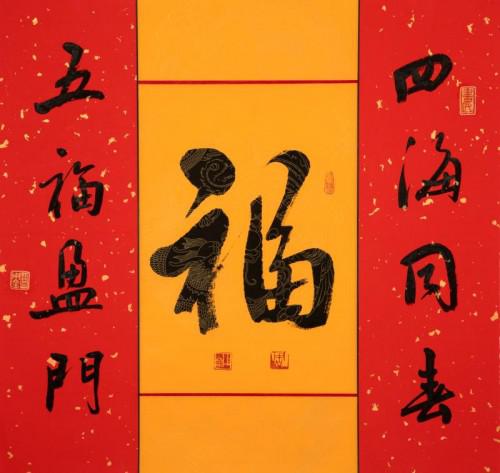 四海同春
福
五福盈門